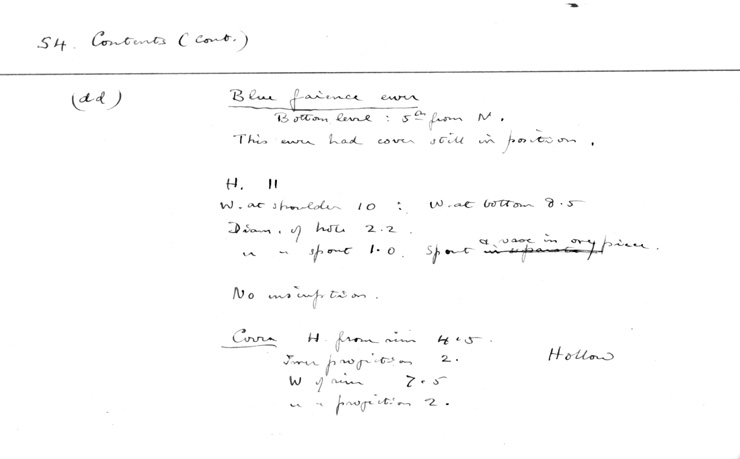 54. Contents (cont.)
(dd)
Blue faience ewer
Bottom level : 5th from N.
This ewer had cover still in position.
H. 11
W. at shoulder 10 : W. at bottom 8.5
Diam. of hole 2.2.
" " spout 1.0. Spout & vase in one piece.
No inscription.
Cover H. from rim 4.5.
Inner projection 2. Hollow
W of rim 7.5
" " projection 2.